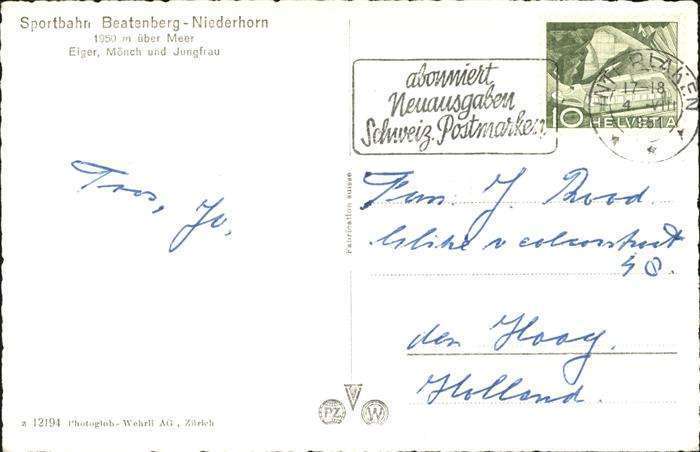 Sportbahn Beatenberg-Niederhorn
1950 m über Meer
Eiger, Mönch und Jungfrau
abonniert
Neuausgaben
Schweiz. Postmarken
10 HELVETIA
INTERLAKEN
17-18
4. VIII
1951
Tros, Jo,
Fam. J. Rood
48.
den Haag.
Holland.
Fabrication suisse
PZ W
z 12194 Photoglob-Wehrli AG, Zürich